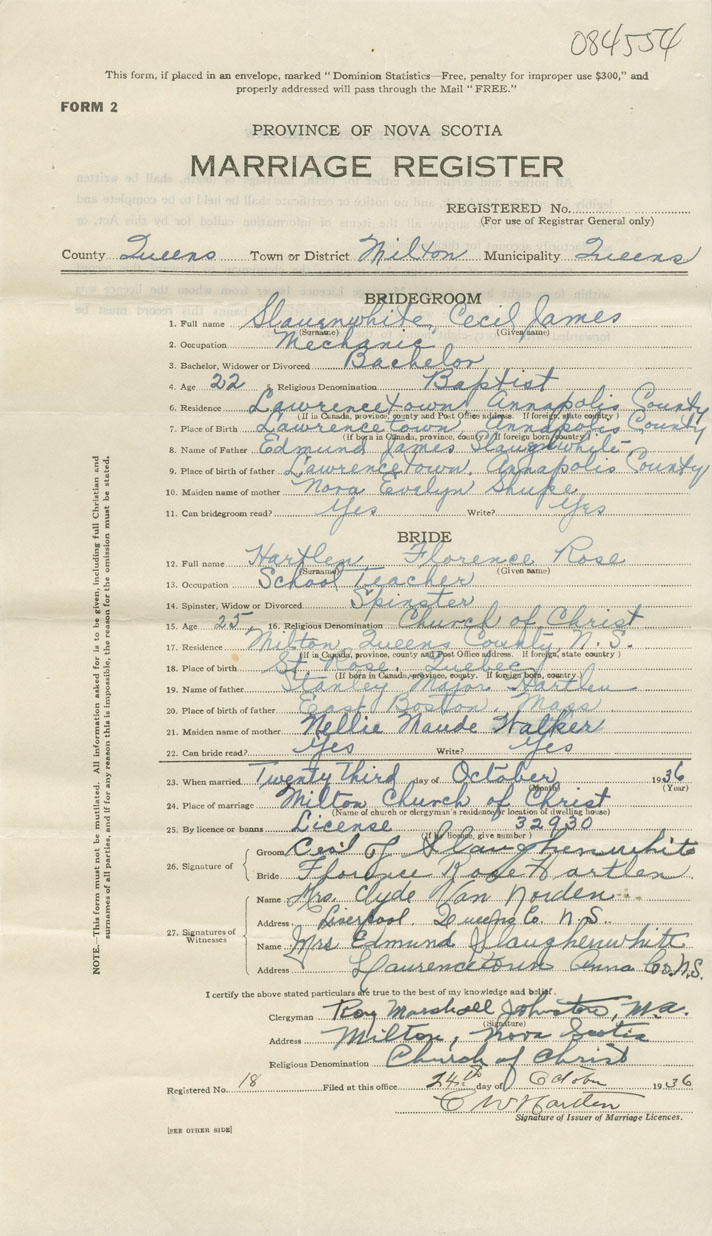 084554
This form, if placed in an envelope, marked "Dominion Statistics—Free, penalty for improper use $300," and
properly addressed will pass through the Mail "FREE."
FORM 2
PROVINCE OF NOVA SCOTIA
MARRIAGE REGISTER
REGISTERED No.
(For use of Registrar General only)
County Queens Town or District Milton Municipality Queens
BRIDEGROOM
1. Full name Slaugnwhite, Cecil James
(Surname) (Given name)
2. Occupation Mechanic
3. Bachelor, Widower or Divorced Bachelor
4. Age 22 5. Religious Denomination Baptist
6. Residence Lawrencetown, Annapolis County
(If in Canada, province, county and Post Office address. If foreign, state country)
7. Place of Birth Lawrencetown, Annapolis County
(If born in Canada, province, county. If foreign born, country)
8. Name of Father Edmund James Slaugnwhite
9. Place of birth of father Lawrencetown, Annapolis County
10. Maiden name of mother Nora Evalyn Shupe
11. Can bridegroom read? Yes Write? Yes
BRIDE
12. Full name Hartlen Florence Rose
(Surname) (Given name)
13. Occupation School Teacher
14. Spinster, Widow or Divorced Spinster
15. Age 25 16. Religious Denomination Church of Christ
17. Residence Milton, Queens County, N. S.
(If in Canada, province, county and Post Office address. If foreign, state country)
18. Place of birth St. Rose, Quebec
(If born in Canada, province, county. If foreign born, country.)
19. Name of father Stanley Major Hartlen
20. Place of birth of father East Boston, Mass
21. Maiden name of mother Nellie Maude Walker
22. Can bride read? Yes Write? Yes
23. When married Twenty Third day of October 1936
(Month) (Year)
24. Place of marriage Milton Church of Christ
(Name of church or clergyman's residence, or location of dwelling house)
25. By licence or banns License 32930
(If by licence, give number)
26. Signature of Groom Cecil J Slaughenwhite
Bride Florence Rose Hartlen
27. Signatures of Witnesses
Name Mrs. Clyde Van Norden
Address Liverpool, Queens Co. N.S.
Name Mrs Edmund Slaughenwhitt
Address Laurencetown Anna Co. N.S.
I certify the above stated particulars are true to the best of my knowledge and belief.
Clergyman Roy Marshall Johnston, M.A.
(Signature)
Address Milton, Nova Scotia
Religious Denomination Church of Christ
Registered No. 18 Filed at this office 24th day of October 1936
C W Hartlen
Signature of Issuer of Marriage Licences.
[SEE OTHER SIDE]
NOTE.—This form must not be mutilated. All information asked for is to be given, including full Christian and
surnames of all parties, and if for any reason this is impossible, the reason for the omission must be stated.